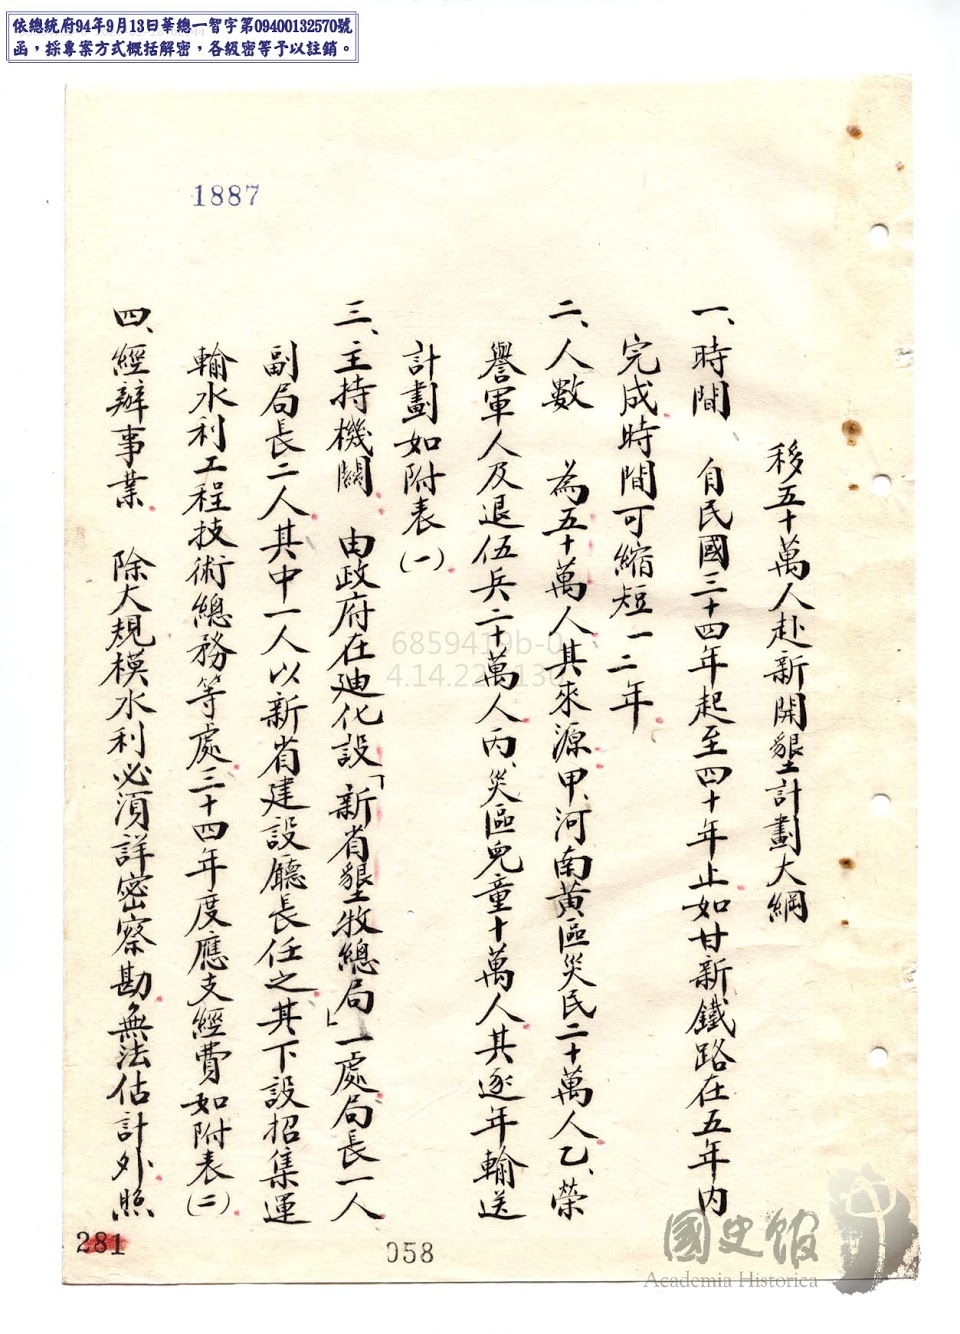 依總統府94年9月13日華總一智字第09400132570號
函，採專案方式概括解密，各級密等予以註銷。
1887
移五十萬人赴新開墾計劃大綱
一、時間　自民國三十四年起至四十年止如甘新鐵路在五年內
完成時間可縮短一二年
二、人數　為五十萬人其來源甲、河南黃區災民二十萬人乙、榮
譽軍人及退伍兵二十萬人丙、災區兒童十萬人其逐年輸送
計劃如附表(一)
三、主持機關　由政府在迪化設「新省墾牧總局」一處局長一人
副局長二人其中一人以新省建設廳長任之其下設招集運
輸水利工程技術總務等處三十四年度應支經費如附表(二)
四、經辦事業　除大規模水利必須詳密察勘無法估計外照
281
058
6859419b-0
國史館
Academia Historica